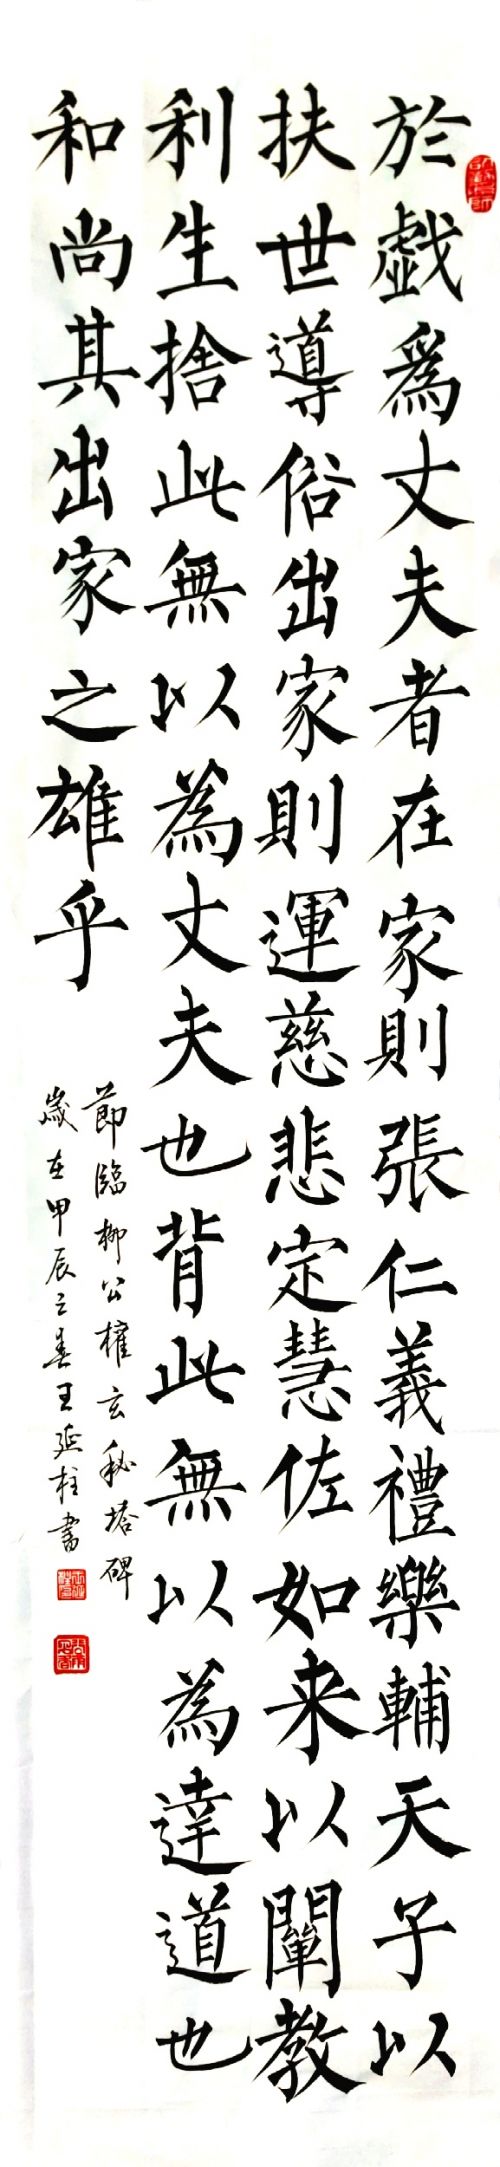 於戲爲丈夫者在家則張仁義禮樂輔天子以
扶世導俗出家則運慈悲定慧佐如来以闡教
利生捨此無以為丈夫也背此無以為達道也
和尚其出家之雄乎
節臨柳公權玄秘塔碑
歲在甲辰之春王延柱書